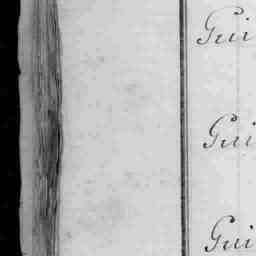 Gui
Gui
Gui